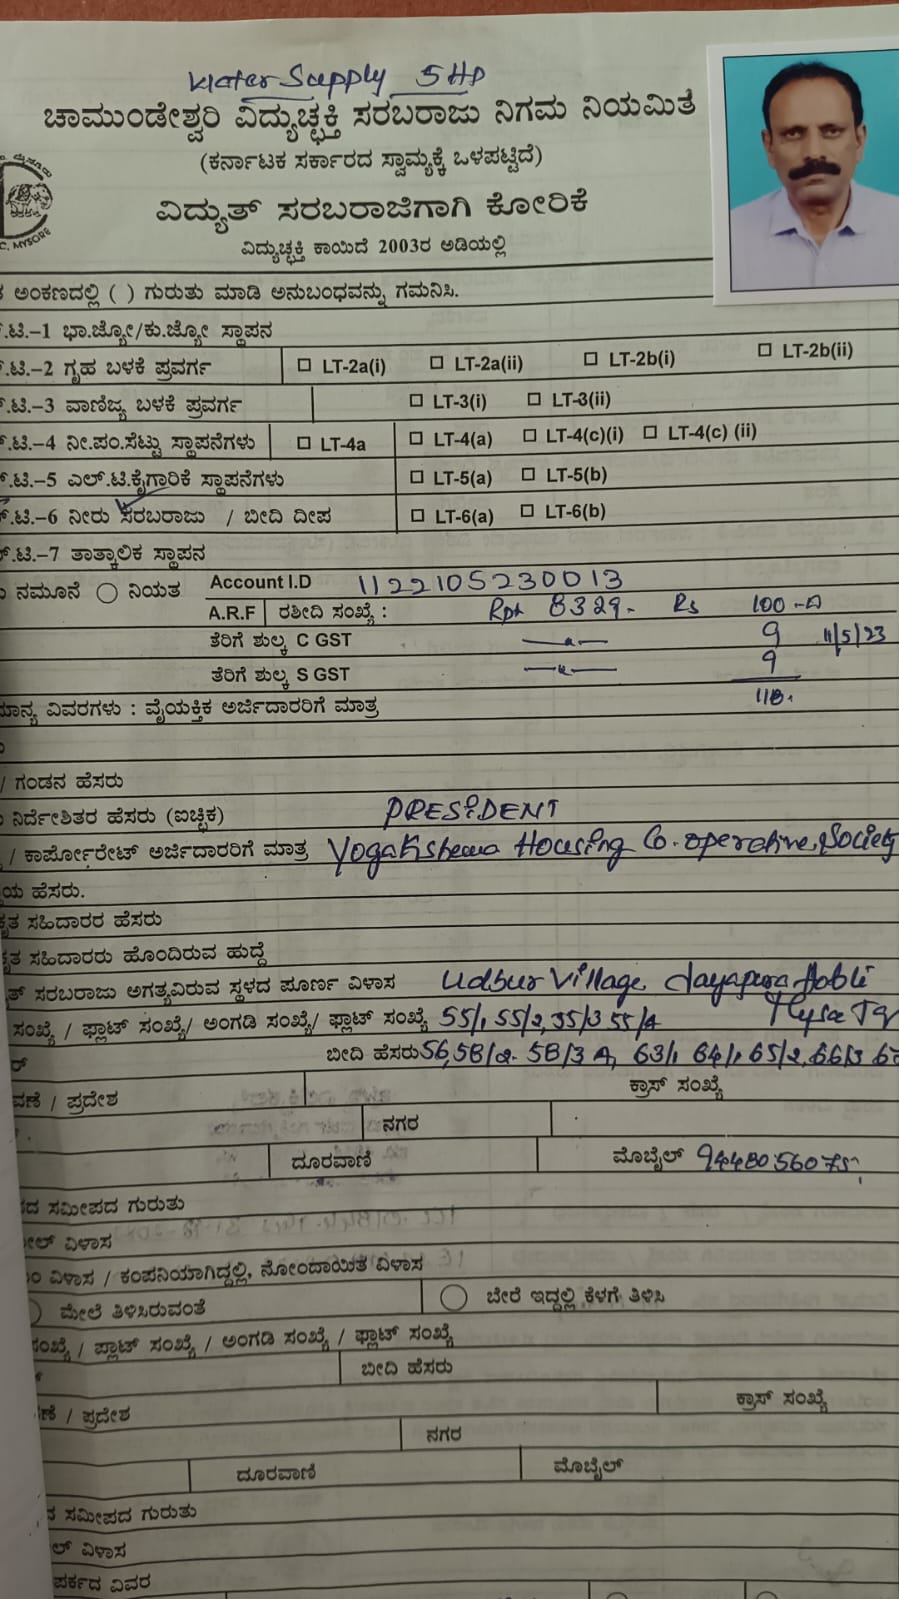 Water Supply 5HP
ಚಾಮುಂಡೇಶ್ವರಿ ವಿದ್ಯುಚ್ಛಕ್ತಿ ಸರಬರಾಜು ನಿಗಮ ನಿಯಮಿತ
(ಕರ್ನಾಟಕ ಸರ್ಕಾರದ ಸ್ವಾಮ್ಯಕ್ಕೆ ಒಳಪಟ್ಟಿದೆ)
MYSORE
ವಿದ್ಯುತ್ ಸರಬರಾಜಿಗಾಗಿ ಕೋರಿಕೆ
ವಿದ್ಯುಚ್ಛಕ್ತಿ ಕಾಯಿದೆ 2003ರ ಅಡಿಯಲ್ಲಿ
ಅಂಕಣದಲ್ಲಿ ( ) ಗುರುತು ಮಾಡಿ ಅನುಬಂಧವನ್ನು ಗಮನಿಸಿ.
.ಟಿ.–1 ಭಾ.ಜ್ಯೋ/ಕು.ಜ್ಯೋ ಸ್ಥಾಪನ
.ಟಿ.–2 ಗೃಹ ಬಳಕೆ ಪ್ರವರ್ಗ LT-2a(i) LT-2a(ii) LT-2b(i) LT-2b(ii)
.ಟಿ.–3 ವಾಣಿಜ್ಯ ಬಳಕೆ ಪ್ರವರ್ಗ LT-3(i) LT-3(ii)
.ಟಿ.–4 ನೀ.ಪಂ.ಸೆಟ್ಟು ಸ್ಥಾಪನೆಗಳು LT-4a LT-4(a) LT-4(c)(i) LT-4(c) (ii)
.ಟಿ.–5 ಎಲ್.ಟಿ.ಕೈಗಾರಿಕೆ ಸ್ಥಾಪನೆಗಳು LT-5(a) LT-5(b)
.ಟಿ.–6 ನೀರು ಸರಬರಾಜು / ಬೀದಿ ದೀಪ LT-6(a) LT-6(b)
.ಟಿ.–7 ತಾತ್ಕಾಲಿಕ ಸ್ಥಾಪನ
ನಮೂನೆ ನಿಯತ Account I.D 1122105230013
A.R.F ರಶೀದಿ ಸಂಖ್ಯೆ : Rpt 8329- Rs 100-
ತೆರಿಗೆ ಶುಲ್ಕ C GST 9 11/5/23
ತೆರಿಗೆ ಶುಲ್ಕ S GST 9
118.
ಮಾನ್ಯ ವಿವರಗಳು : ವೈಯಕ್ತಿಕ ಅರ್ಜಿದಾರರಿಗೆ ಮಾತ್ರ
/ ಗಂಡನ ಹೆಸರು
ನಿರ್ದೇಶಿತರ ಹೆಸರು (ಐಚ್ಛಿಕ) PRESIDENT
/ ಕಾರ್ಪೋರೇಟ್ ಅರ್ಜಿದಾರರಿಗೆ ಮಾತ್ರ Yogakshema Housing Co-operative Society
ಯ ಹೆಸರು.
ಕೃತ ಸಹಿದಾರರ ಹೆಸರು
ಕೃತ ಸಹಿದಾರರು ಹೊಂದಿರುವ ಹುದ್ದೆ
ತ್ ಸರಬರಾಜು ಅಗತ್ಯವಿರುವ ಸ್ಥಳದ ಪೂರ್ಣ ವಿಳಾಸ Udbur Village Jayapura Hobli
ಸಂಖ್ಯೆ / ಫ್ಲಾಟ್ ಸಂಖ್ಯೆ/ ಅಂಗಡಿ ಸಂಖ್ಯೆ/ ಫ್ಲಾಟ್ ಸಂಖ್ಯೆ 55/1, 55/2, 55/3 55/4
ಬೀದಿ ಹೆಸರು 56, 58/2. 58/3 63/1 64/1, 65/2, 66/3
ವಣೆ / ಪ್ರದೇಶ ಕ್ರಾಸ್ ಸಂಖ್ಯೆ
ನಗರ
ದೂರವಾಣಿ ಮೊಬೈಲ್ 9448056075
ದ ಸಮೀಪದ ಗುರುತು
ಮೇಲ್ ವಿಳಾಸ
ವಿಳಾಸ / ಕಂಪನಿಯಾಗಿದ್ದಲ್ಲಿ, ನೋಂದಾಯಿತ ವಿಳಾಸ
ಮೇಲೆ ತಿಳಿಸಿರುವಂತೆ ಬೇರೆ ಇದ್ದಲ್ಲಿ ಕೆಳಗೆ ತಿಳಿಸಿ
ಸಂಖ್ಯೆ / ಪ್ಲಾಟ್ ಸಂಖ್ಯೆ / ಅಂಗಡಿ ಸಂಖ್ಯೆ / ಫ್ಲಾಟ್ ಸಂಖ್ಯೆ
ಬೀದಿ ಹೆಸರು
ಣೆ / ಪ್ರದೇಶ ಕ್ರಾಸ್ ಸಂಖ್ಯೆ
ನಗರ
ದೂರವಾಣಿ ಮೊಬೈಲ್
ಸಮೀಪದ ಗುರುತು
ಲ್ ವಿಳಾಸ
ಪರ್ಕದ ವಿವರ